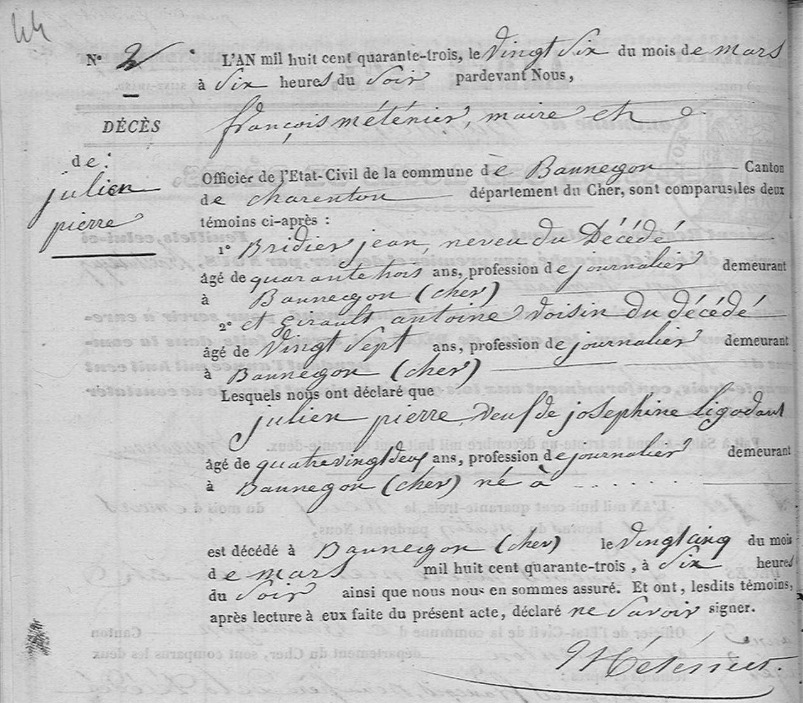 44
N° 2 L'AN mil huit cent quarante-trois, le Vingt Six du mois de mars
à Six heures du Soir pardevant Nous,
DÉCÈS
françois méténier, maire et
de :
julien
pierre
Officier de l'Etat-Civil de la commune de Bannegon Canton
de charenton département du Cher, sont comparus les deux
témoins ci-après :
1° Bridier jean, neveu du Décédé
âgé de quarante trois ans, profession de journalier demeurant
à Bannegon (cher)
2° et Girault antoine voisin du décédé
âgé de Vingt Sept ans, profession de journalier demeurant
à Bannegon (cher)
Lesquels nous ont déclaré que
julien pierre, veuf de josephine Ligodant
âgé de quatrevingt deux ans, profession de journalier demeurant
à Bannegon (cher) né à . . . . . .
est décédé à Bannegon (cher) le Vingt cinq du mois
de mars mil huit cent quarante-trois, à Six heures
du Soir ainsi que nous nous en sommes assuré. Et ont, lesdits témoins,
après lecture à eux faite du présent acte, déclaré ne Savoir signer.
Méténier